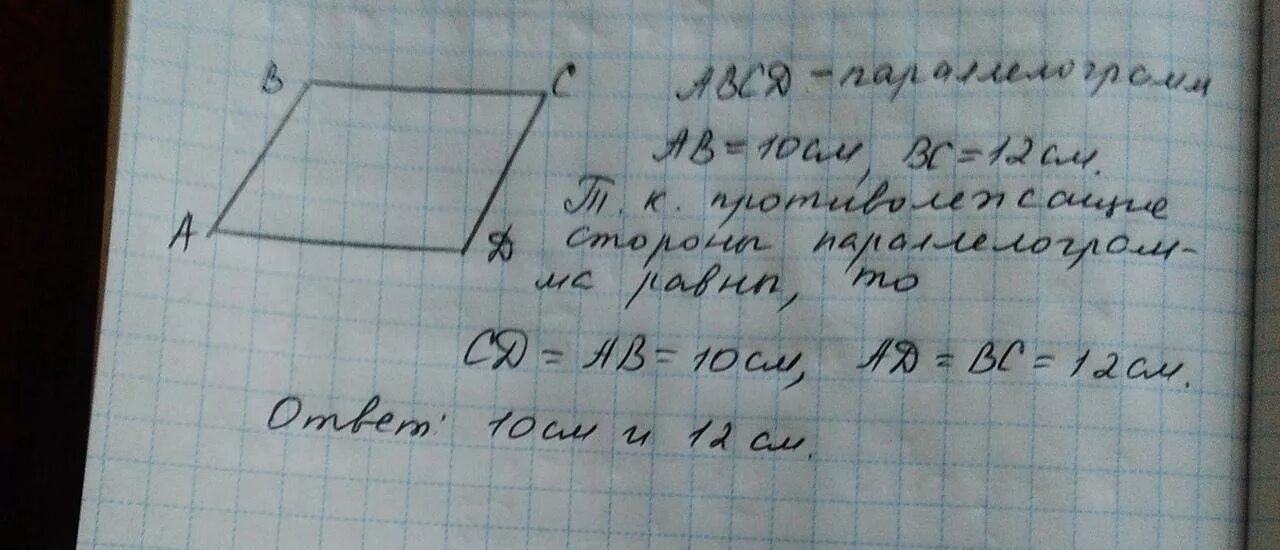 B
C
ABCD - параллелограмм
AB = 10 см, BC = 12 см.
Т. к. противолежащие
A
D
стороны параллелограм-
ма равны, то
CD = AB = 10 см, AD = BC = 12 см.
Ответ: 10 см и 12 см.